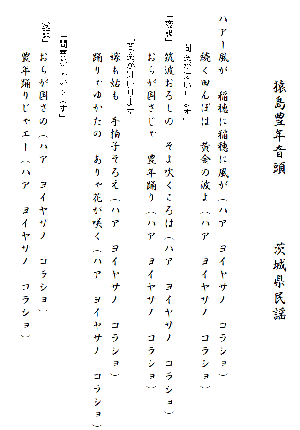 猿島豊年音頭　　茨城県民謡
ハアー風が　稲穂に稲穂に風が（ハア　ヨイヤサノ　コラショ）
続く田んぼは　黄金の波よ（ハア　ヨイヤサノ　コラショ）
筑波おろしの　そよ吹くころは（ハア　ヨイヤサノ　コラショ）
おらが国さじゃ　豊年踊り（ハア　ヨイヤサノ　コラショ）
嫁も姑も　手拍子そろえ（ハア　ヨイヤサノ　コラショ）
踊りゃゆかたの　ありゃ花が咲く（ハア　ヨイヤサノ　コラショ）
おらが国さの（ハア　ヨイヤサノ　コラショ）
豊年踊りじゃエー（ハア　ヨイヤサノ　コラショ）